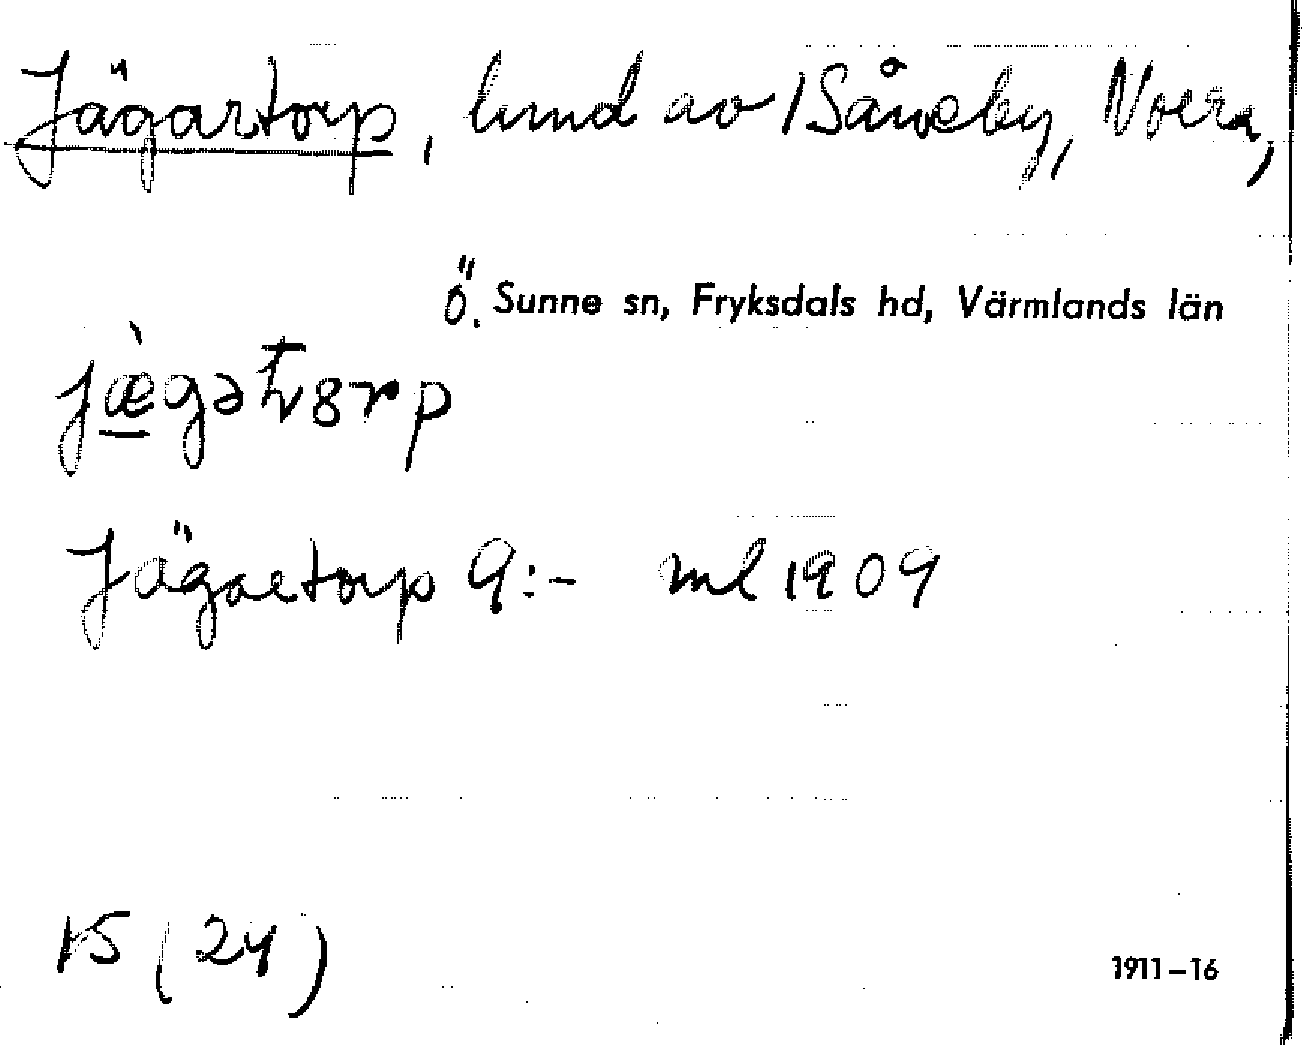 Jägartorp, lund av Båreby, Norra,
Ö. Sunne sn, Fryksdals hd, Värmlands län
jæ̀gət̄v8rp
Jägaretorp 9:- ml 1909
15 (24)
1911–16